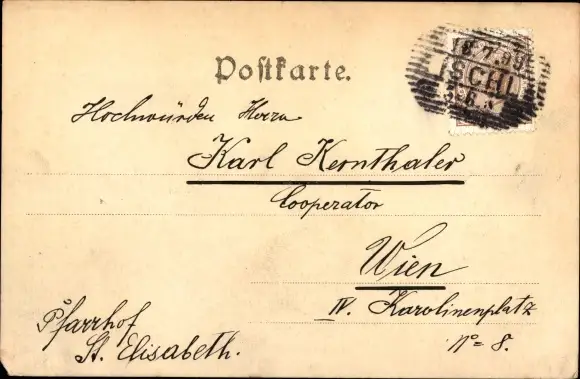 Postkarte.
18.7.99
ISCHL
Hochwürden Herrn
Karl Kernthaler
Cooperator
Wien
IV. Karolinenplatz
No 8.
Pfarrhof
St. Elisabeth.